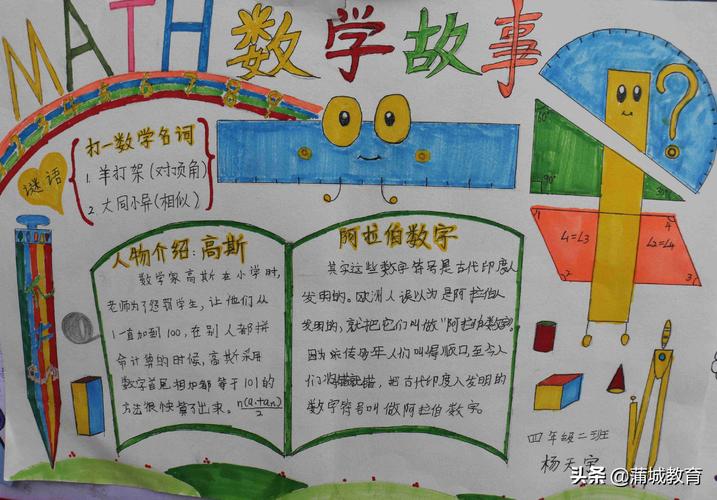 MATH 数学故事
3 4 5 6 7 8 9
谜语
打一数学名词
1. 羊打架(对顶角)
2. 大同小异(相似)
60°
90°
30°
1
4
∠1=∠3
∠2=∠4
2
3
人物介绍:高斯
数学家高斯在小学时,
老师为了惩罚学生,让他们从
1一直加到100,在别人都拼
命计算的时候,高斯采用
数字首尾相加都等于101的
方法很快算了出来。n(a₁+aₙ)/2
阿拉伯数字
其实这些数字符号是古代印度人
发明的。欧洲人误以为是阿拉伯人
发明的,就把它们叫做"阿拉伯数字"。
因为流传多年人们叫得顺口,至今人
们将错就错,把古代印度人发明的
数字符号叫做阿拉伯数字。
四年级二班
杨天宇
头条 @蒲城教育